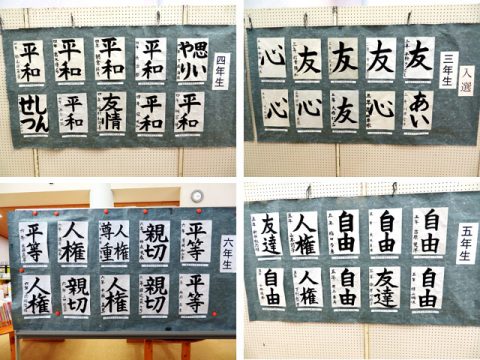 四年生
思いやり
平和
平和
平和
平和
平和
平和
友情
平和
しんせつ
入選
三年生
友
友
友
友
心
あい
心
友
心
心
六年生
平等
親切
人権尊重
人権
平等
平等
親切
人権
親切
人権
五年生
自由
自由
自由
人権
友達
自由
友達
自由
人権
自由